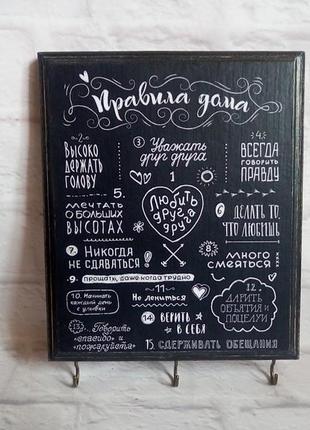 Правила дома
1
Любить
друг
друга
·2·
Высоко
держать
голову
3 Уважать
друг друга
·4·
Всегда
говорить
правду
5.
мечтать
о больших
высотах
6 делать то,
что любишь
7. Никогда
не сдаваться!
8.
много
смеяться
·9· прощать, даже когда трудно
10. Начинать
каждый день
с улыбки
·11·
Не лениться
12.
Дарить
объятия и
поцелуи
13. Говорить
„спасибо" и
„пожалуйста"
14 верить
в себя
15. сдерживать обещания